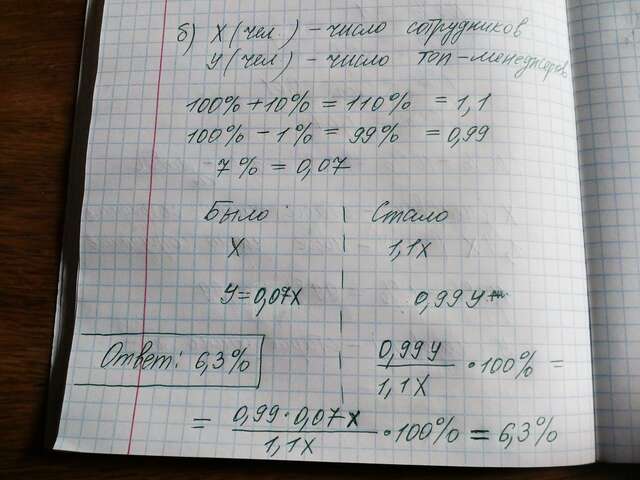 б) X (чел) – число сотрудников
У (чел) – число топ-менеджеров
100% + 10% = 110% = 1,1
100% – 1% = 99% = 0,99
7% = 0,07
Было Стало
X 1,1X
У = 0,07X 0,99У
Ответ: 6,3%
0,99У / 1,1X • 100% =
= 0,99 • 0,07X / 1,1X • 100% = 6,3%